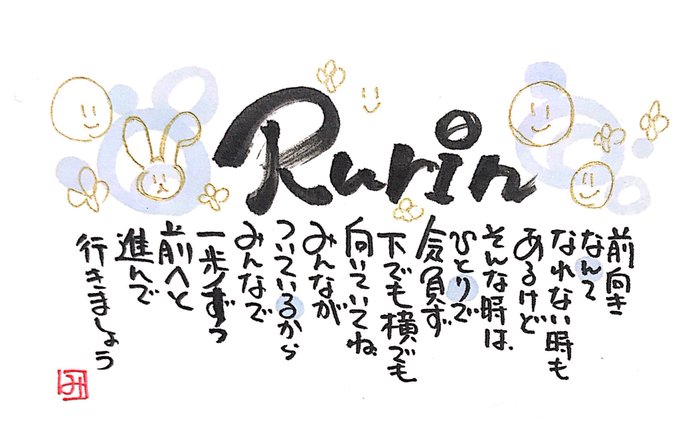 Rurin
前向き
なんて
なれない時も
あるけど
そんな時は、
ひとりで
気負ず
下でも横でも
向いていてね
みんなが
ついているから
みんなで
一歩ずつ
前へと
進んで
行きましょう
み